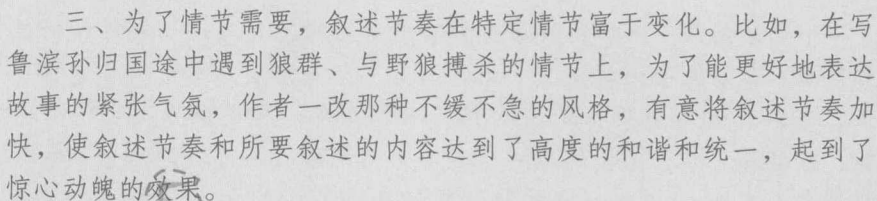 三、为了情节需要，叙述节奏在特定情节富于变化。比如，在写
鲁滨孙归国途中遇到狼群、与野狼搏杀的情节上，为了能更好地表达
故事的紧张气氛，作者一改那种不缓不急的风格，有意将叙述节奏加
快，使叙述节奏和所要叙述的内容达到了高度的和谐和统一，起到了
惊心动魄的效果。